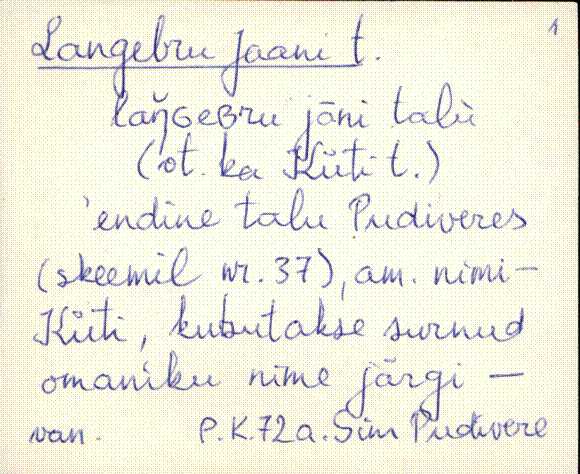 1
Langebru Jaani t.
laŋ̆GeBru jāni talù
(ot. ka Küti t.)
'endine talu Pudiveres
(skeemil nr. 37), am. nimi -
Küti, kutsutakse surnud
omaniku nime järgi -
van. P.K. 72 a. Sim Pudivere